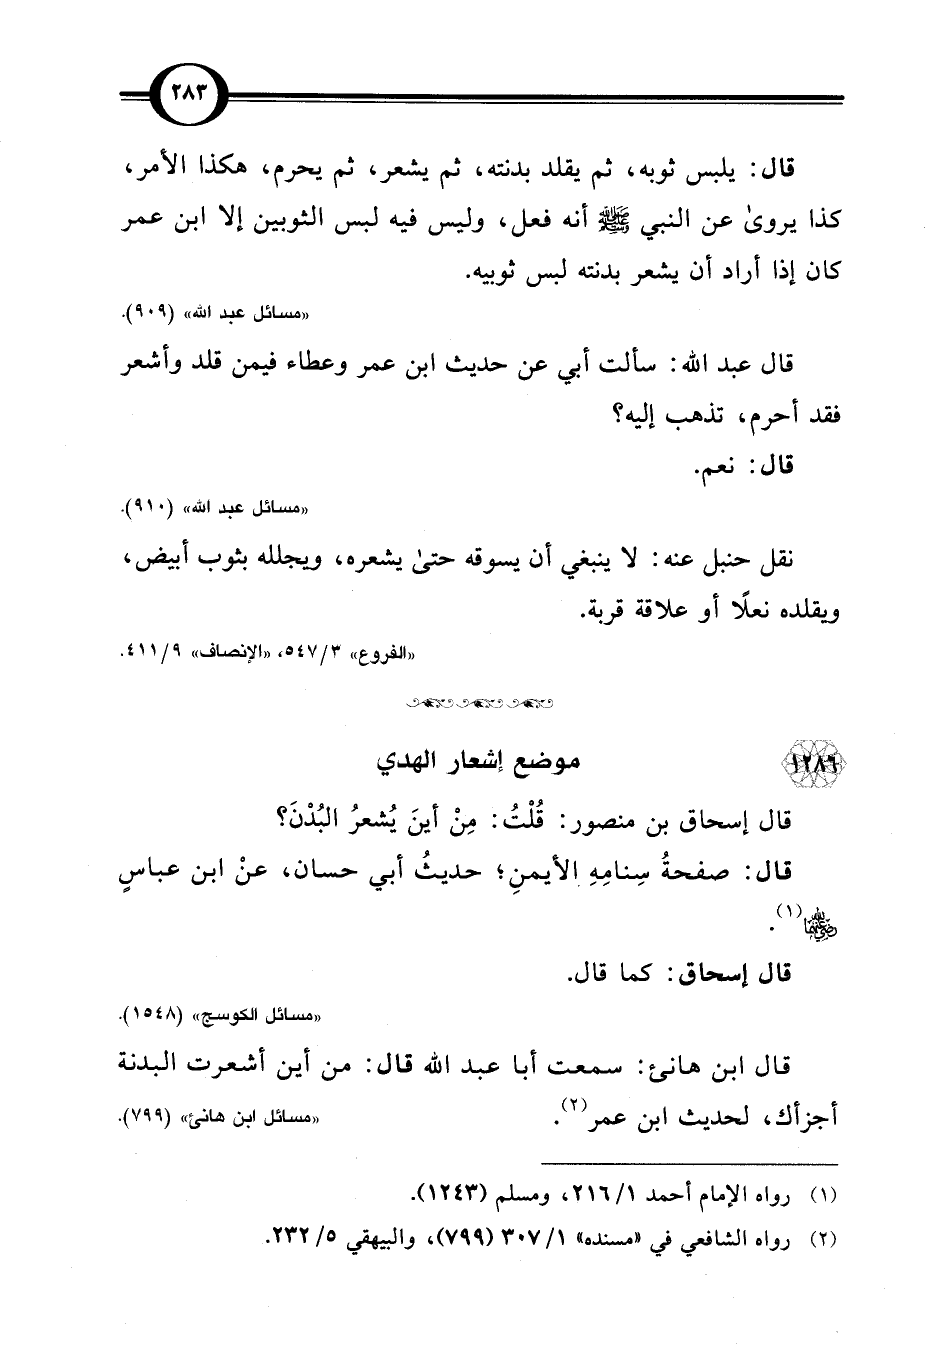 ٢٨٣
قال: يلبس ثوبه، ثم يقلد بدنته، ثم يشعر، ثم يحرم، هكذا الأمر،
كذا يروىٰ عن النبي ﷺ أنه فعل، وليس فيه لبس الثوبين إلا ابن عمر
كان إذا أراد أن يشعر بدنته لبس ثوبيه.
«مسائل عبد الله» (٩٠٩).
قال عبد الله: سألت أبي عن حديث ابن عمر وعطاء فيمن قلد وأشعر
فقد أحرم، تذهب إليه؟
قال: نعم.
«مسائل عبد الله» (٩١٠).
نقل حنبل عنه: لا ينبغي أن يسوقه حتىٰ يشعره، ويجلله بثوب أبيض،
ويقلده نعلًا أو علاقة قربة.
«الفروع» ٣/ ٥٤٧، «الإنصاف» ٩/ ٤١١.
١٢٨٦ موضع إشعار الهدي
قال إسحاق بن منصور: قُلْتُ: مِنْ أينَ يُشعرُ البُدْنَ؟
قال: صفحةُ سِنامِهِ الأيمنِ؛ حديثُ أبي حسان، عنْ ابن عباسٍ
رضي الله عنهما(١).
قال إسحاق: كما قال.
«مسائل الكوسج» (١٥٤٨).
قال ابن هانئ: سمعت أبا عبد الله قال: من أين أشعرت البدنة
أجزأك، لحديث ابن عمر(٢). «مسائل ابن هانئ» (٧٩٩).
(١) رواه الإمام أحمد ١/ ٢١٦، ومسلم (١٢٤٣).
(٢) رواه الشافعي في «مسنده» ١/ ٣٠٧ (٧٩٩)، والبيهقي ٥/ ٢٣٢.